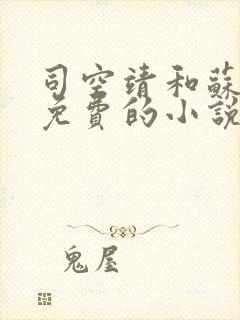 司空靖和蘇
免費的小說
鬼屋